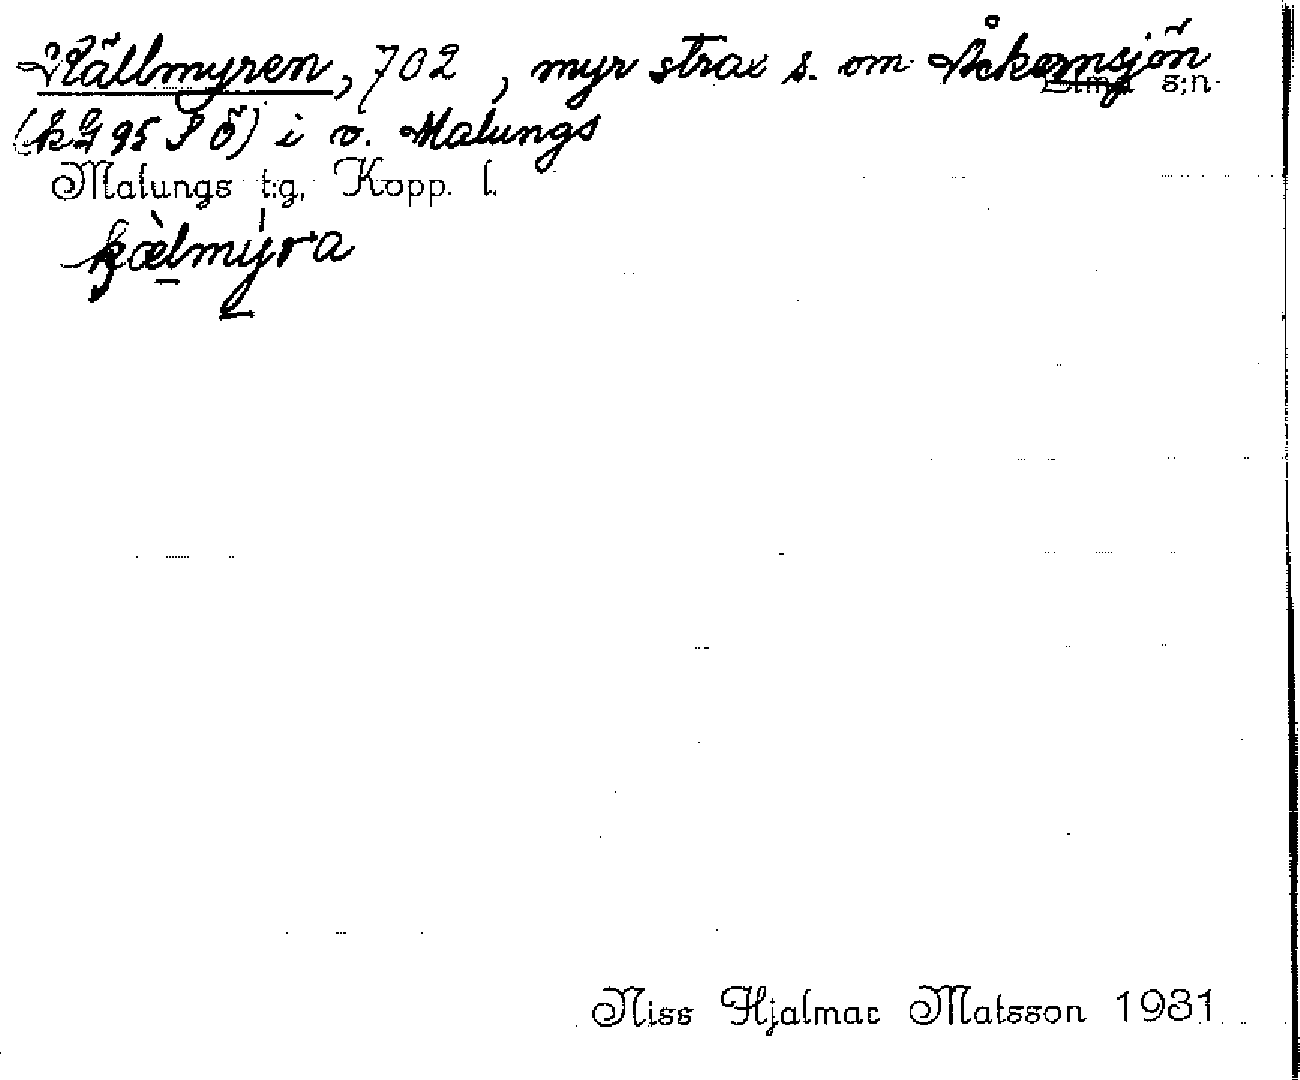 Källmyren, 702, myr strax s. om Åkersmsjön s:n.
(kg 95 S Ö) i v. Malungs
Malungs t:g, Kopp. l.
kælmýra
Niss Hjalmar Matsson 1931